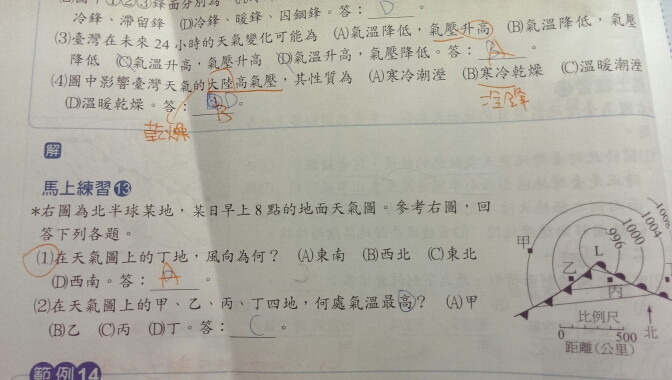 冷鋒、滯留鋒 (D)冷鋒、暖鋒、囚錮鋒。答：
(3)臺灣在未來24小時的天氣變化可能為 (A)氣溫降低，氣壓升高 (B)氣溫降低，氣壓
降低 (C)氣溫升高，氣壓升高 (D)氣溫升高，氣壓降低。答：A。
(4)圖中影響臺灣天氣的大陸高氣壓，其性質為 (A)寒冷潮溼 (B)寒冷乾燥 (C)溫暖潮溼
(D)溫暖乾燥。答：D。
B
冷鋒
乾燥
解
馬上練習13
*右圖為北半球某地，某日早上8點的地面天氣圖。參考右圖，回
答下列各題。
(1)在天氣圖上的丁地，風向為何？ (A)東南 (B)西北 (C)東北
(D)西南。答：A。
(2)在天氣圖上的甲、乙、丙、丁四地，何處氣溫最高？ (A)甲
(B)乙 (C)丙 (D)丁。答：C。
甲
乙
丙
L
996
1000
1004
比例尺
0 500
距離(公里)
北
範例14